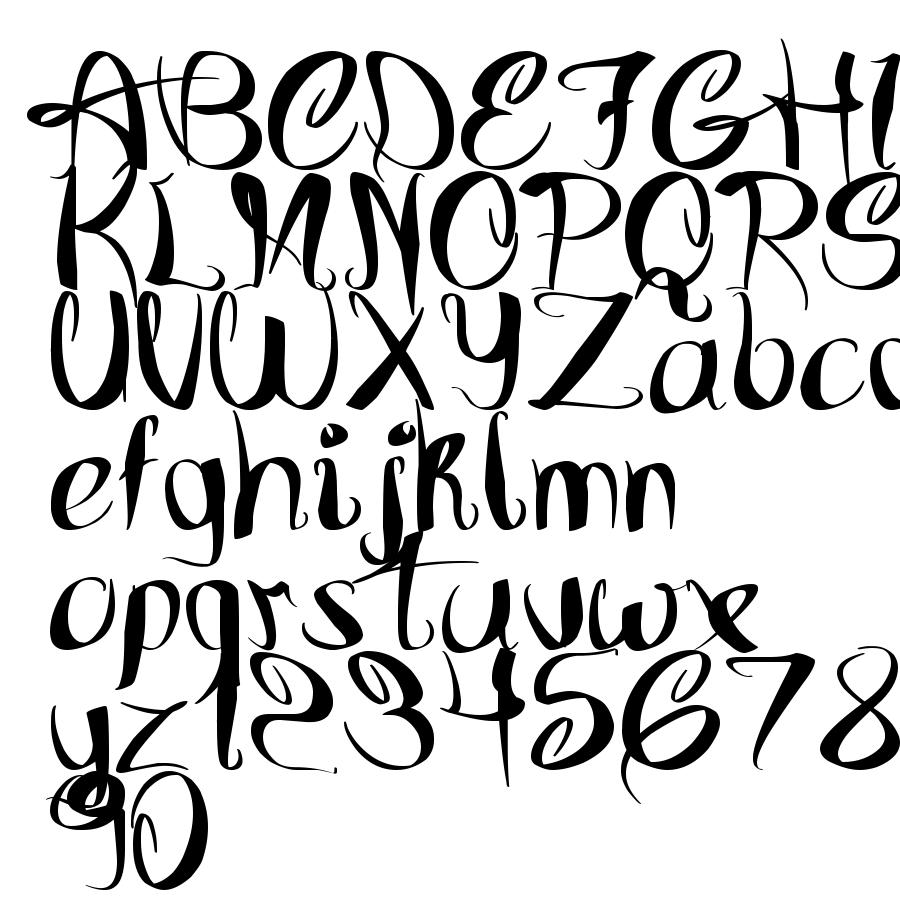 ABCDEFGHI
KLMNOPQRS
UVWXYZabcd
efghijklmn
opqrstuvwxe
yz12345678
90